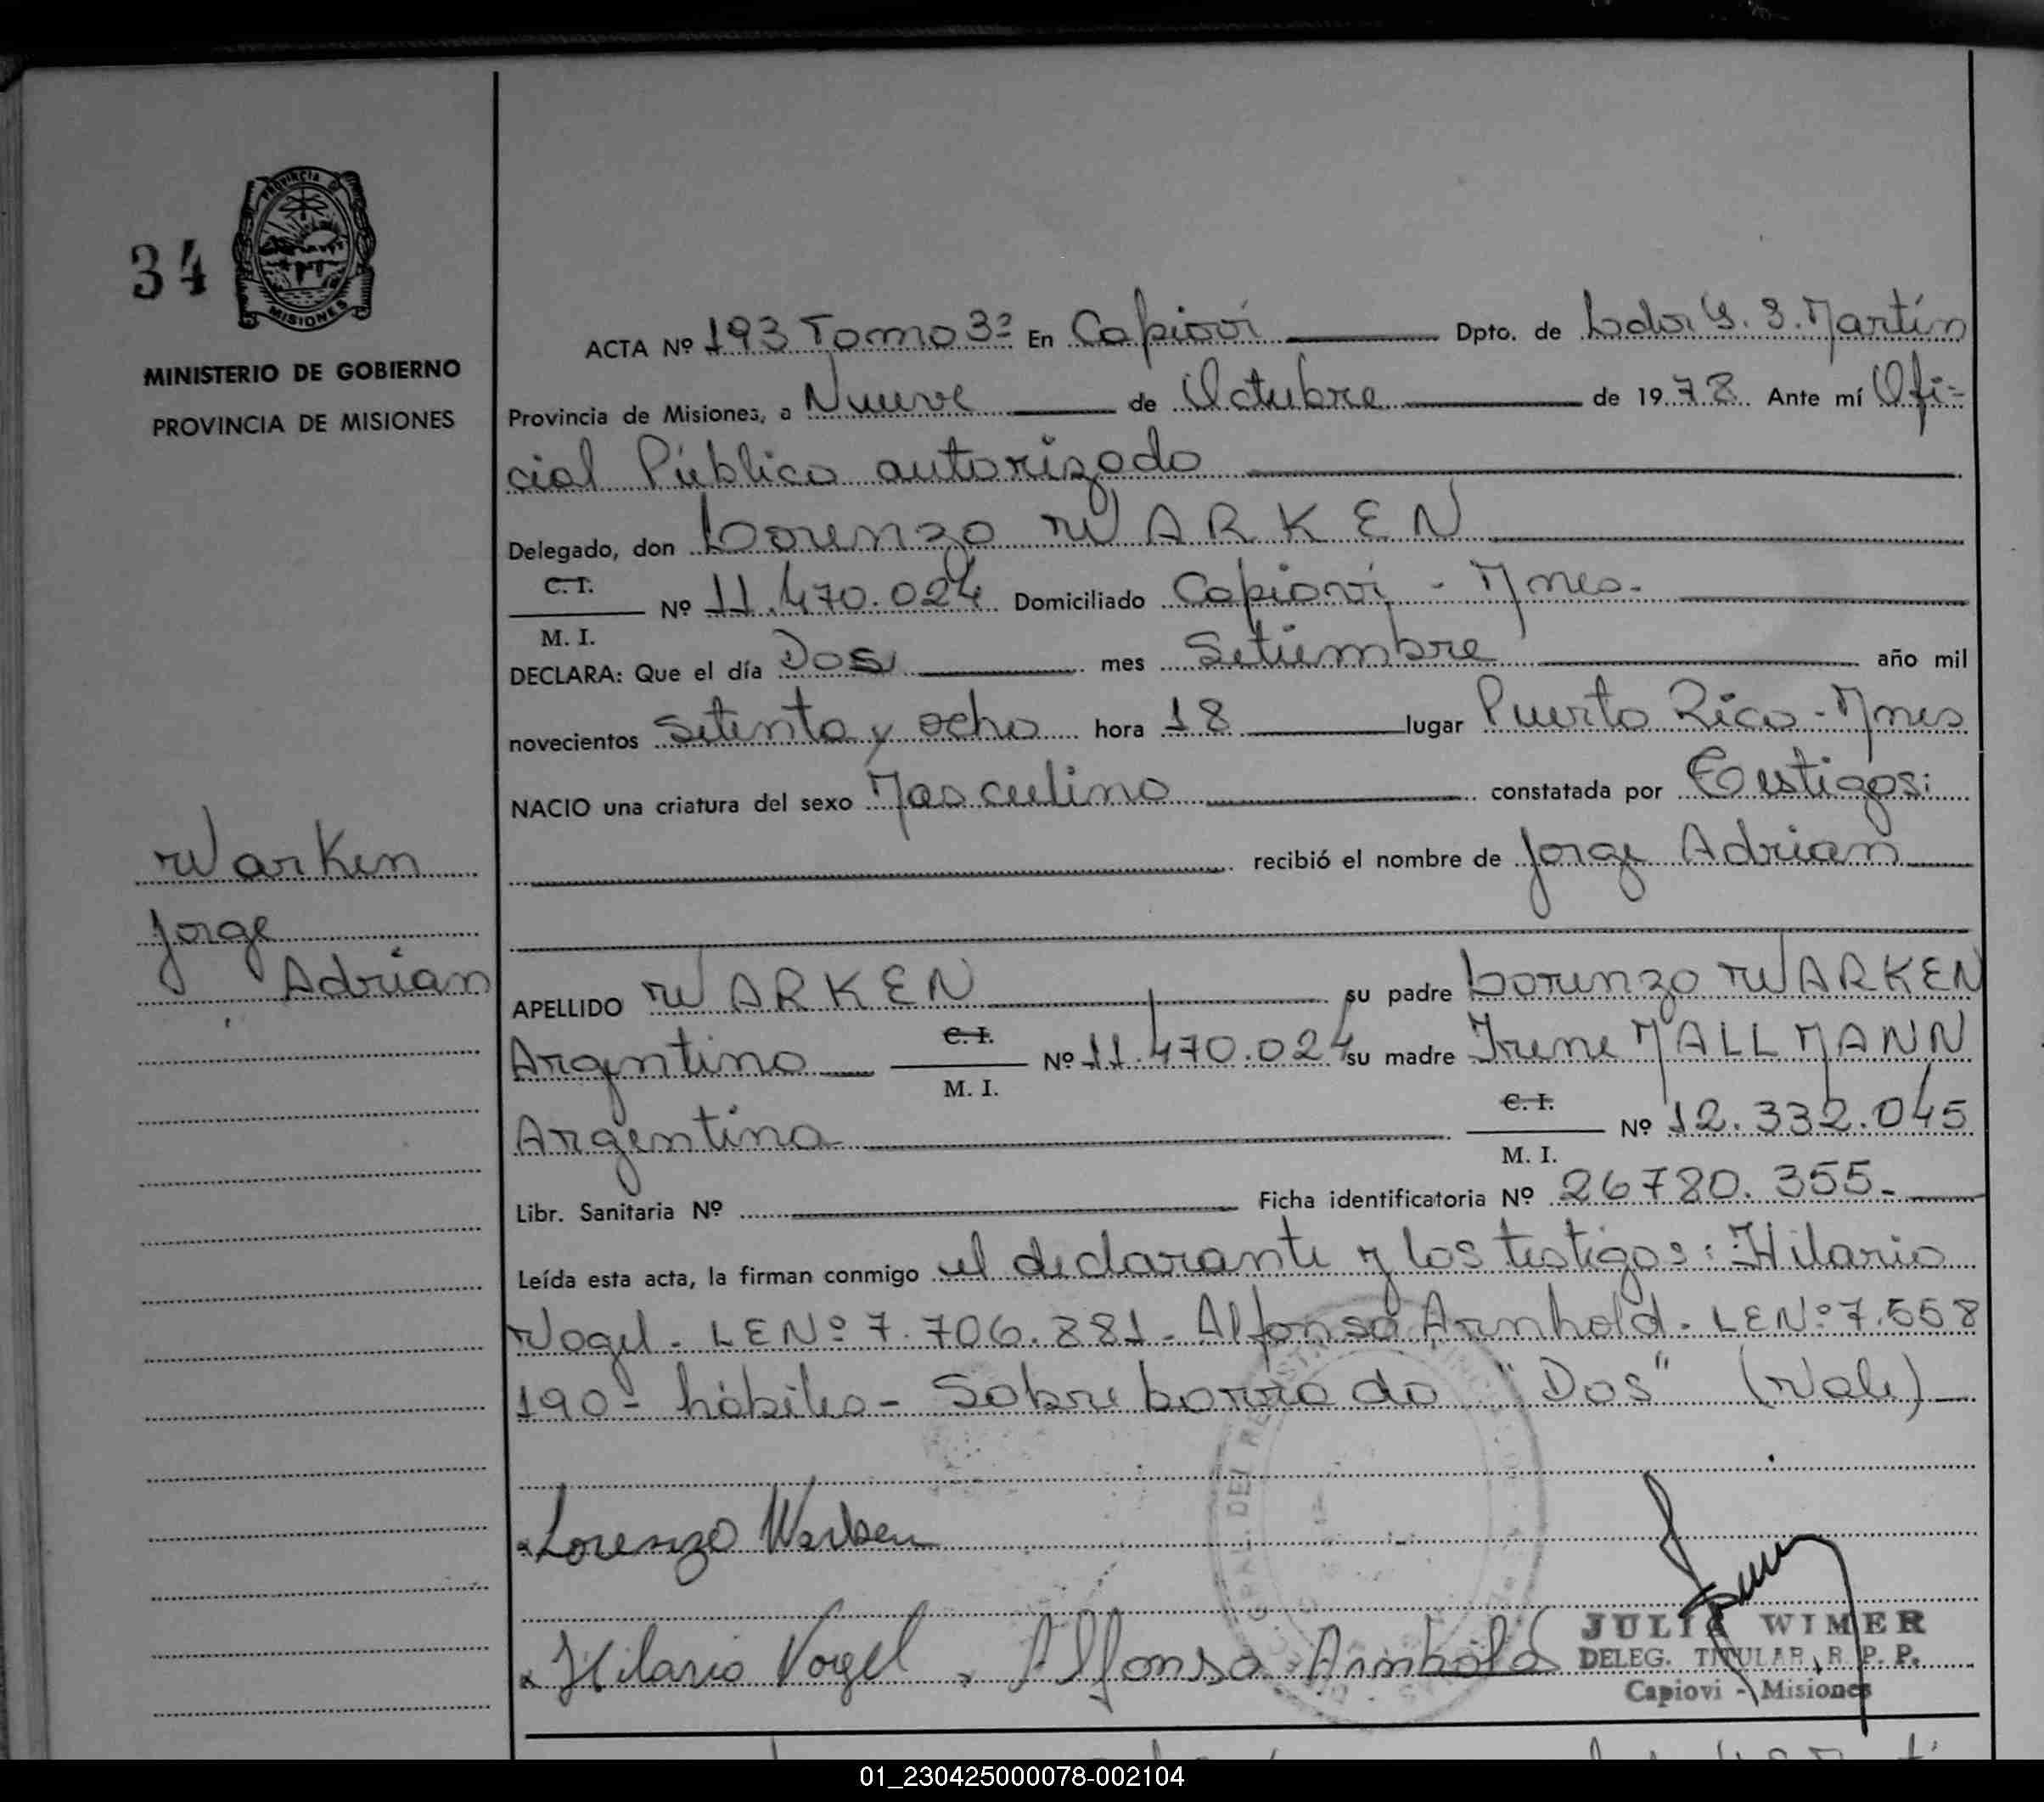 34
PROVINCIA DE
MISIONES
MINISTERIO DE GOBIERNO
PROVINCIA DE MISIONES
Warken
Jorge
Adrian
ACTA Nº 193 Tomo 3º En Capioví Dpto. de Ldor G. S. Martín
Provincia de Misiones, a Nueve de Octubre de 1978 Ante mí Ofi-
cial Público autorizado
Delegado, don Lorenzo WARKEN
C. I.
Nº 11.470.024 Domiciliado Capioví - Mnes.
M. I.
DECLARA: Que el día Dos mes Setiembre año mil
novecientos setenta y ocho hora 18 lugar Puerto Rico - Mnes
NACIO una criatura del sexo Masculino constatada por Testigos:
recibió el nombre de Jorge Adrian
APELLIDO WARKEN su padre Lorenzo WARKEN
Argentino C. I. Nº 11.470.024 su madre Irene MALLMANN
M. I.
Argentina C. I. Nº 12.332.045
M. I.
Libr. Sanitaria Nº Ficha identificatoria Nº 26780.355-
Leída esta acta, la firman conmigo el declarante y los testigos: Hilario
Vogel - LENº 7.706.881 - Alfonso Arnhold - LENº 7.558
190 - hábiles - Sobreborrado "Dos" (Vale)
Lorenzo Warken
Hilario Vogel Alfonso Arnhold
JULIA WIMER
DELEG. TITULAR R. P. P.
Capiovi - Misiones
01_230425000078-002104